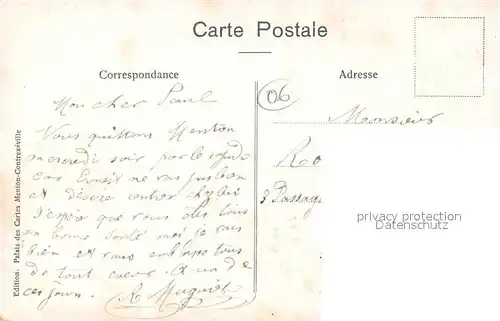 Carte Postale
Correspondance
Adresse
Mon cher Paul
Vous quittons Menton
mercredi soir par le rapide
car Ernest ne va pas bien
et désire rentrer chez lui
J'espère que vous êtes tous
en bonne santé moi je vais
bien et vous embrasse tous
de tout coeur. A un de
ces jours.
06
Monsieur
3 Passage
Edition. Palais des Cartes Menton-Contrexéville
privacy protection
www.oldthing.de